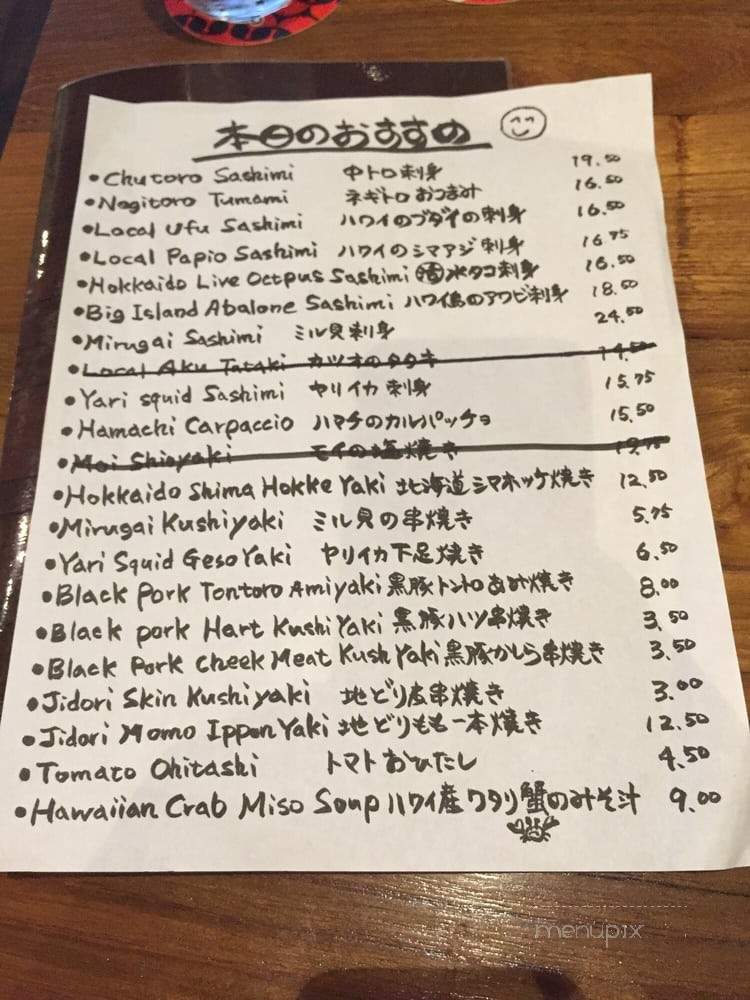 本日のおすすめ
• Chutoro Sashimi 中トロ刺身 19.50
• Negitoro Tumami ネギトロおつまみ 16.50
• Local Ufu Sashimi ハワイのブダイの刺身 16.50
• Local Papio Sashimi ハワイのシマアジ刺身 16.75
• Hokkaido Live Octpus Sashimi 活水タコ刺身 16.50
• Big Island Abalone Sashimi ハワイ島のアワビ刺身 18.50
• Mirugai Sashimi ミル貝刺身 24.50
• Local Aku Tataki カツオのタタキ 14.50
• Yari squid Sashimi ヤリイカ刺身 15.75
• Hamachi Carpaccio ハマチのカルパッチョ 15.50
• Moi Shioyaki モイの塩焼き 19.75
• Hokkaido Shima Hokke Yaki 北海道シマホッケ焼き 12.50
• Mirugai Kushiyaki ミル貝の串焼き 5.75
• Yari Squid Geso Yaki ヤリイカ下足焼き 6.50
• Black Pork Tontoro Amiyaki 黒豚トントロあみ焼き 8.00
• Black pork Hart Kushi Yaki 黒豚ハツ串焼き 3.50
• Black Pork Cheek Meat Kush Yaki 黒豚かしら串焼き 3.50
• Jidori Skin Kushiyaki 地どり皮串焼き 3.00
• Jidori Momo Ippon Yaki 地どりもも一本焼き 12.50
• Tomato Ohitashi トマトおひたし 4.50
• Hawaiian Crab Miso Soup ハワイ産ワタリ蟹のみそ汁 9.00
menupix